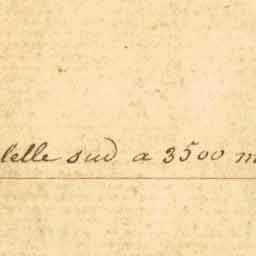 lelle sud a 3500 m